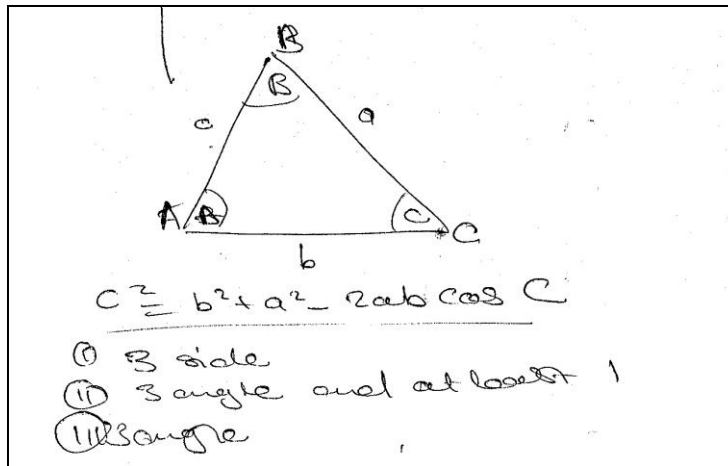 B
B
c a
A B C C
b
c² = b² + a² - 2ab cos C
(i) 3 side
(ii) 3 angle and at least 1
(iii) 3 angle